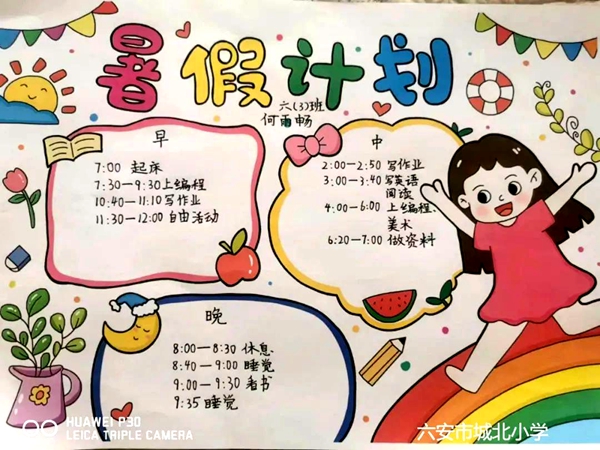 暑假计划
六(3)班
何雨畅
早
7:00 起床
7:30—9:30上编程
10:40—11:10写作业
11:30—12:00自由活动
中
2:00—2:50 写作业
3:00—3:40写英语
阅读
4:00—6:00上编程、
美术
6:20—7:00 做资料
晚
8:00—8:30 休息
8:40—9:00睡觉
9:00—9:30看书
9:35 睡觉
HUAWEI P30
LEICA TRIPLE CAMERA
六安市城北小学